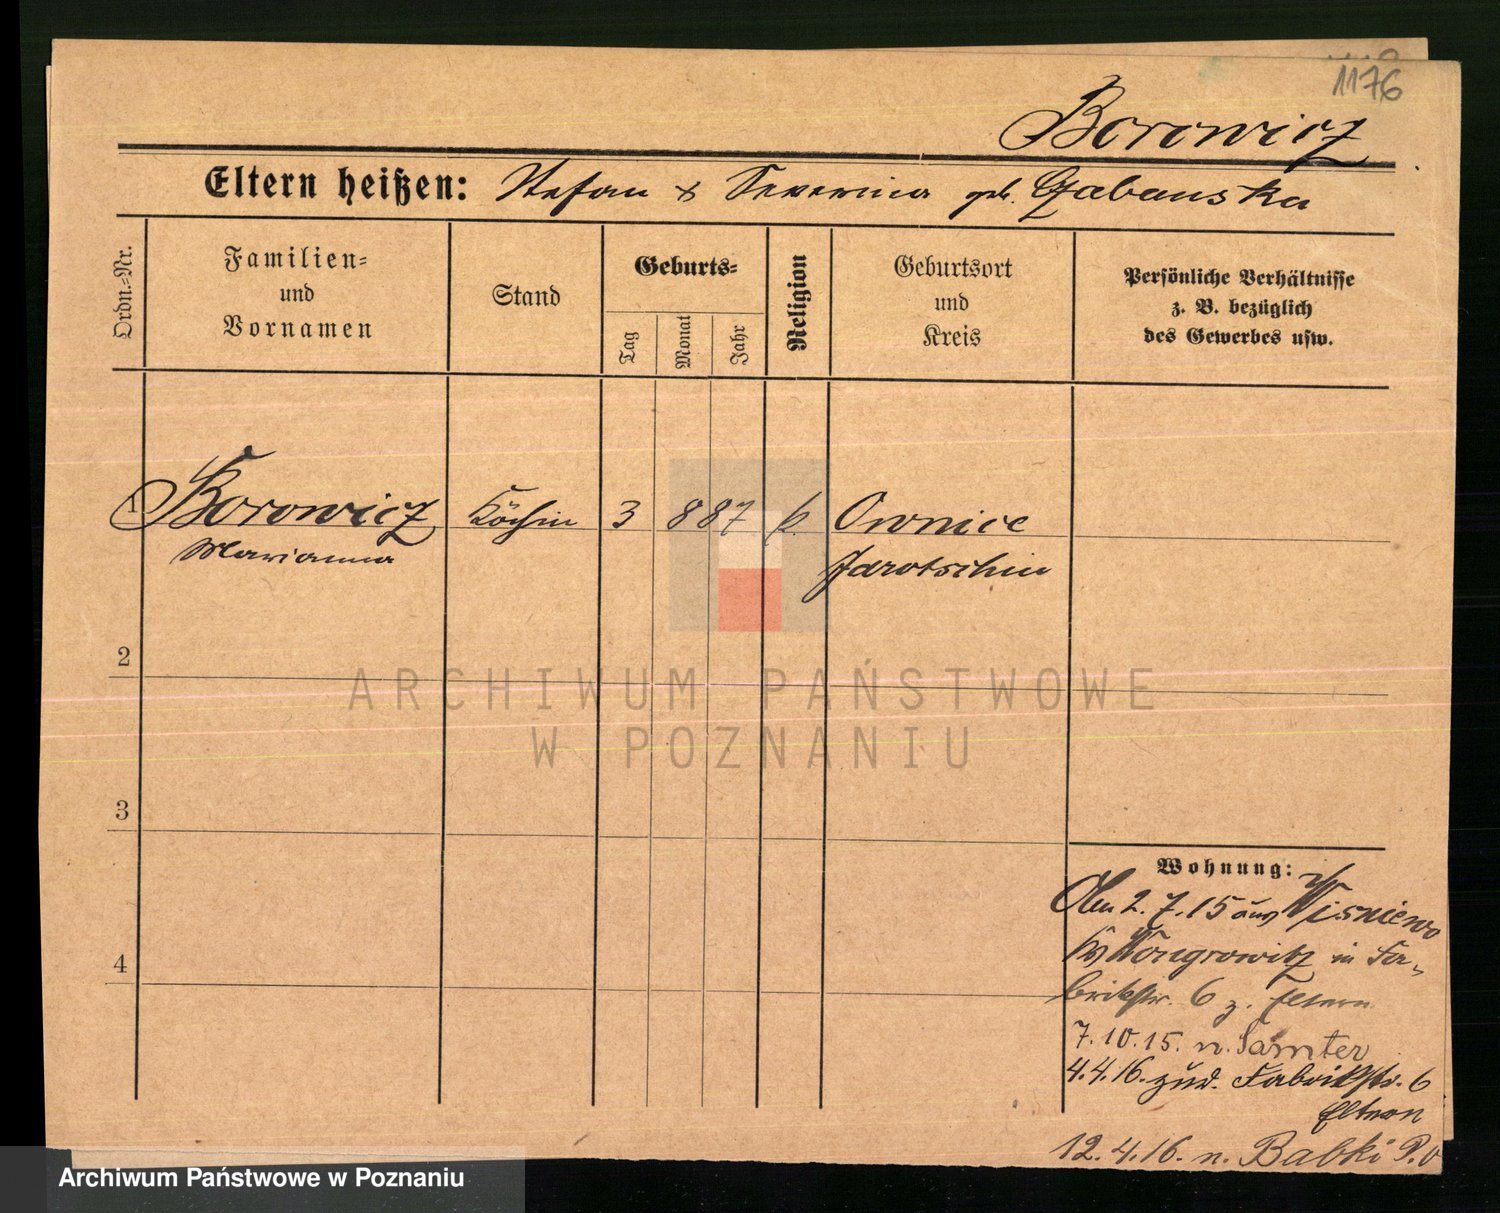 1176
Borowicz
Eltern heißen: Stefan & Severina geb. Czabanska
Ordn.-Nr.
Familien-
und
Vornamen
Stand
Geburts-
Tag
Monat
Jahr
Religion
Geburtsort
und
Kreis
Persönliche Verhältnisse
z. B. bezüglich
des Gewerbes usw.
1 Borowicz Köchin 3 8 87 k. Ownice
Marianna Jarotschin
2
ARCHIWUM PAŃSTWOWE
W POZNANIU
3
Wohnung:
Am 2.7.15 aus Wisniewo
Kr Wongrowitz in Fa-
brikstr. 6 z. Eltern
7.10.15. n. Samter
4.4.16. zur. Fabrikstr. 6
Eltern
12.4.16. n. Babki P.O
4
Archiwum Państwowe w Poznaniu